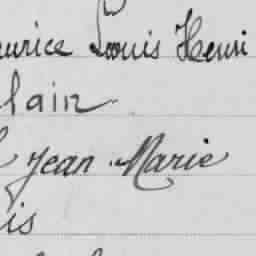 urice Louis Henri
lain
Jean Marie
is